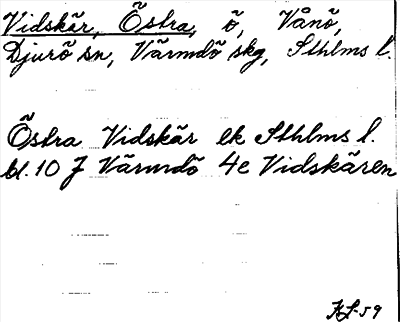 Vidskär, Östra, ö, Vånö,
Djurö sn, Värmdö skg, Sthlms l.
Östra Vidskär ek Sthlms l.
bl. 10 J Värmdö 4e Vidskären